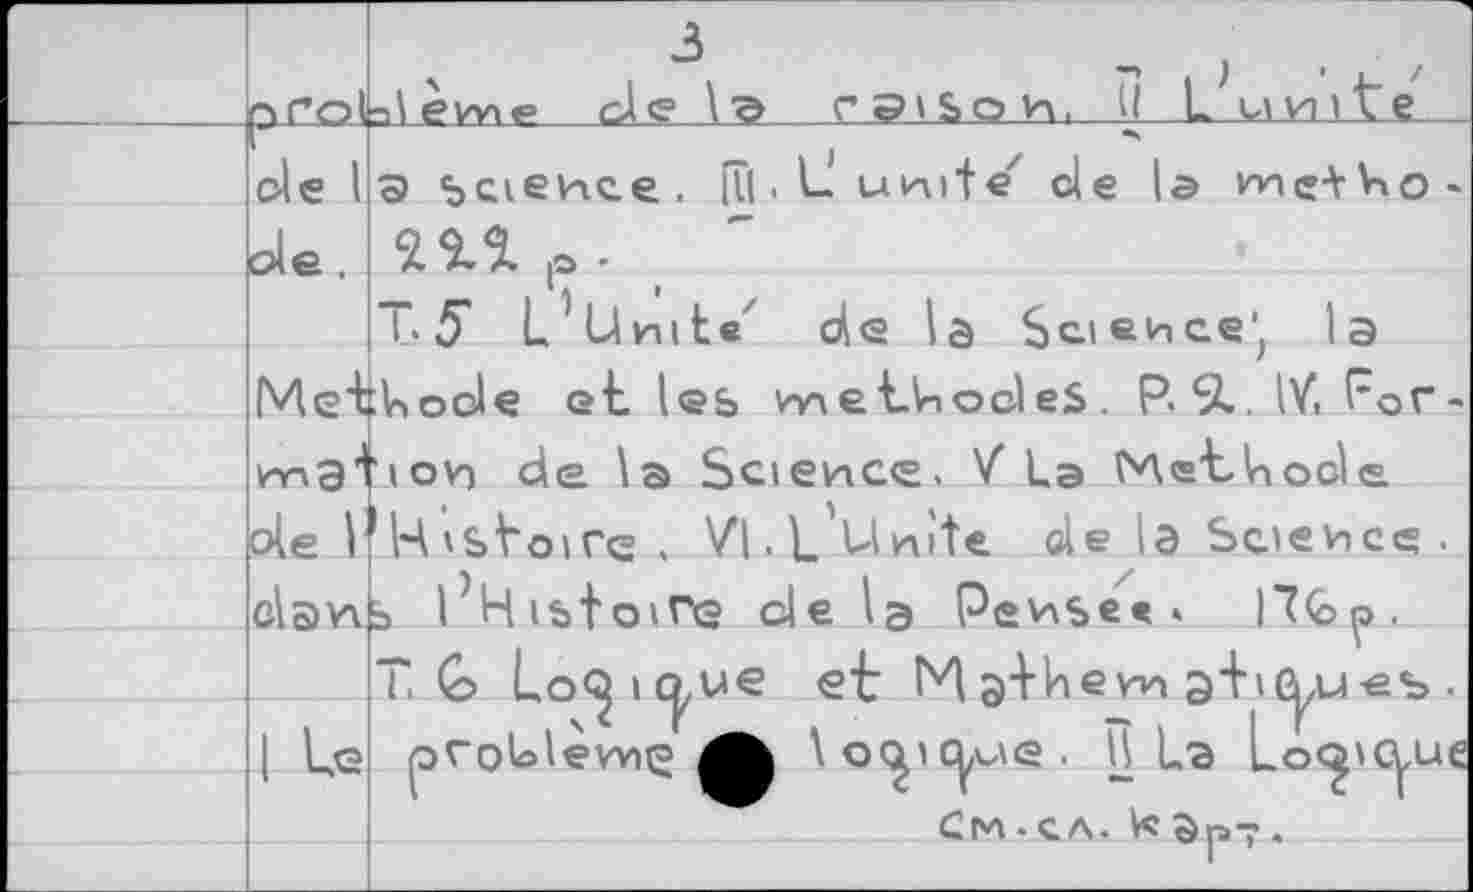 3
problème de la raison. II L'unité
de la science. III. L'unité de la metho-
de. 222 p.
T. 5 L'Unité de la Science; la
Methode et les methodes. P. 2. IV. For-
mation de la Science. V La Methode
de l'Histoire. VI. L'Unite de la Science.
dans l'Histoire de la Pensée. 176 p.
T. 6 Logique et Mathematiques.
I Le problème logique. II La Logique
См. сл. карт.